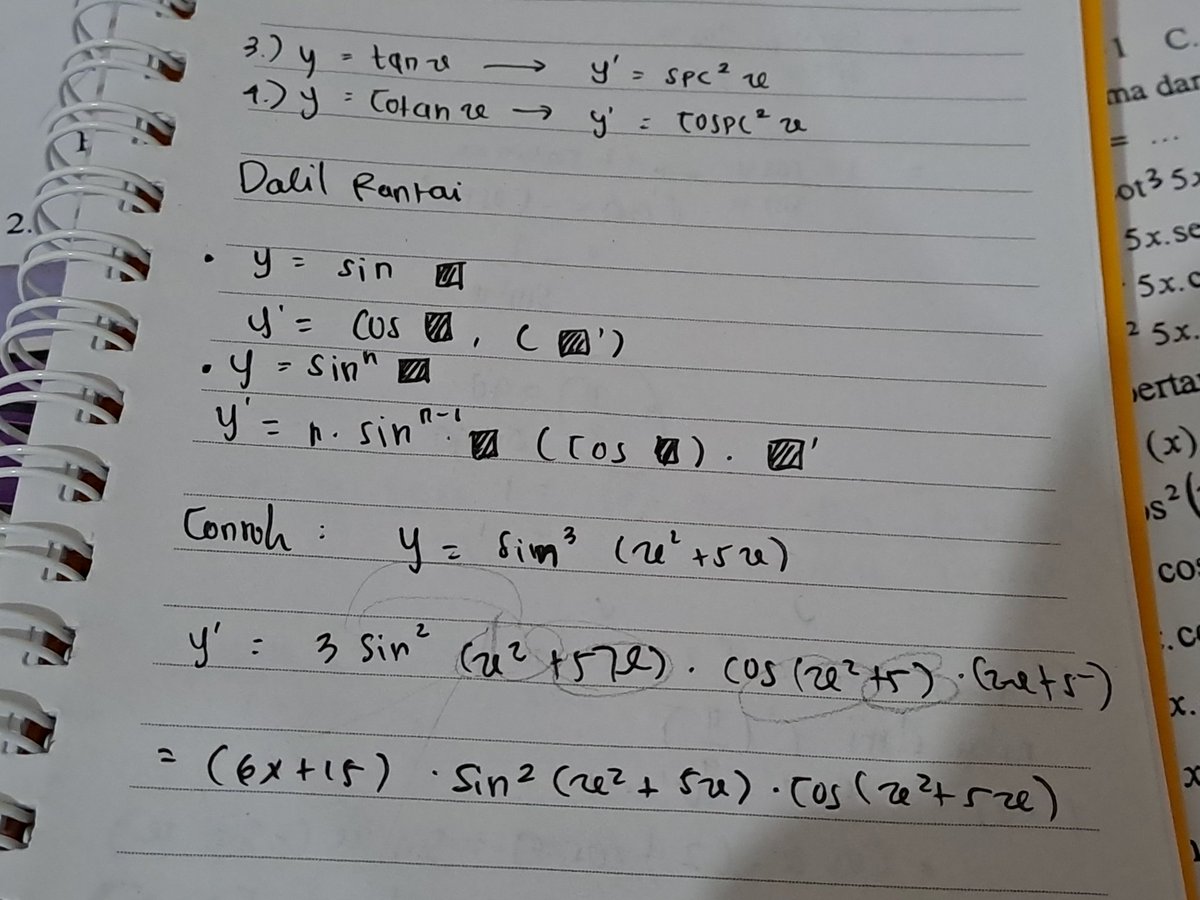 3.) y = tan x → y' = sec² x
4.) y = Cotan x → y' = cosec² x
Dalil Rantai
• y = sin ▨
y' = cos ▨ . ( ▨' )
• y = sinⁿ ▨
y' = n. sinⁿ⁻¹ ▨ (cos ▨) . ▨'
Contoh : y = sin³ (x² + 5x)
y' = 3 sin² (x² + 5x) . cos (x² + 5) . (2x + 5)
= (6x + 15) . sin² (x² + 5x) . cos (x² + 5x)
2.
1 C.
ma dar
= ...
ot³ 5x
5x.se
5x.c
² 5x.
erta
(x)
os² (
cos
x.